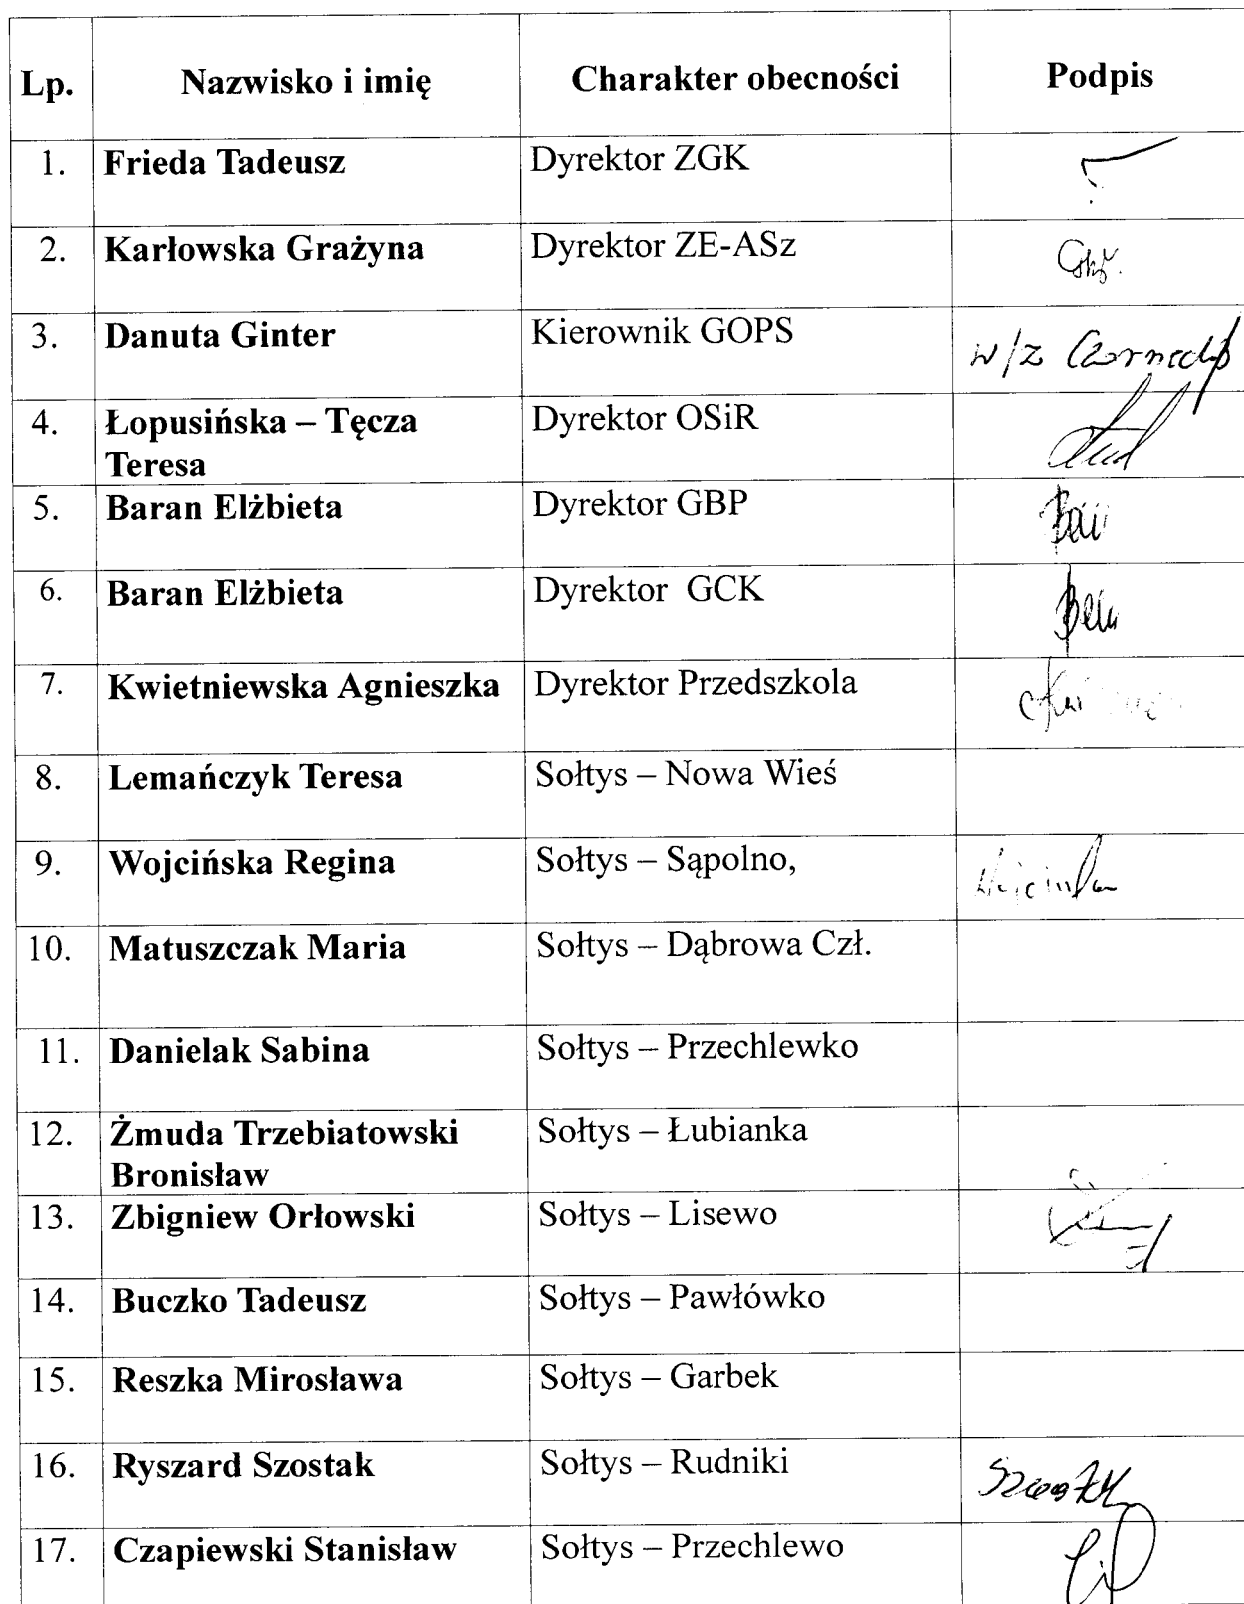 Lp. Nazwisko i imię Charakter obecności Podpis
1. Frieda Tadeusz Dyrektor ZGK
2. Karłowska Grażyna Dyrektor ZE-ASz
3. Danuta Ginter Kierownik GOPS w/z
4. Łopusińska – Tęcza Dyrektor OSiR
Teresa
5. Baran Elżbieta Dyrektor GBP
6. Baran Elżbieta Dyrektor GCK
7. Kwietniewska Agnieszka Dyrektor Przedszkola
8. Lemańczyk Teresa Sołtys – Nowa Wieś
9. Wojcińska Regina Sołtys – Sąpolno,
10. Matuszczak Maria Sołtys – Dąbrowa Czł.
11. Danielak Sabina Sołtys – Przechlewko
12. Żmuda Trzebiatowski Sołtys – Łubianka
Bronisław
13. Zbigniew Orłowski Sołtys – Lisewo
14. Buczko Tadeusz Sołtys – Pawłówko
15. Reszka Mirosława Sołtys – Garbek
16. Ryszard Szostak Sołtys – Rudniki
17. Czapiewski Stanisław Sołtys – Przechlewo